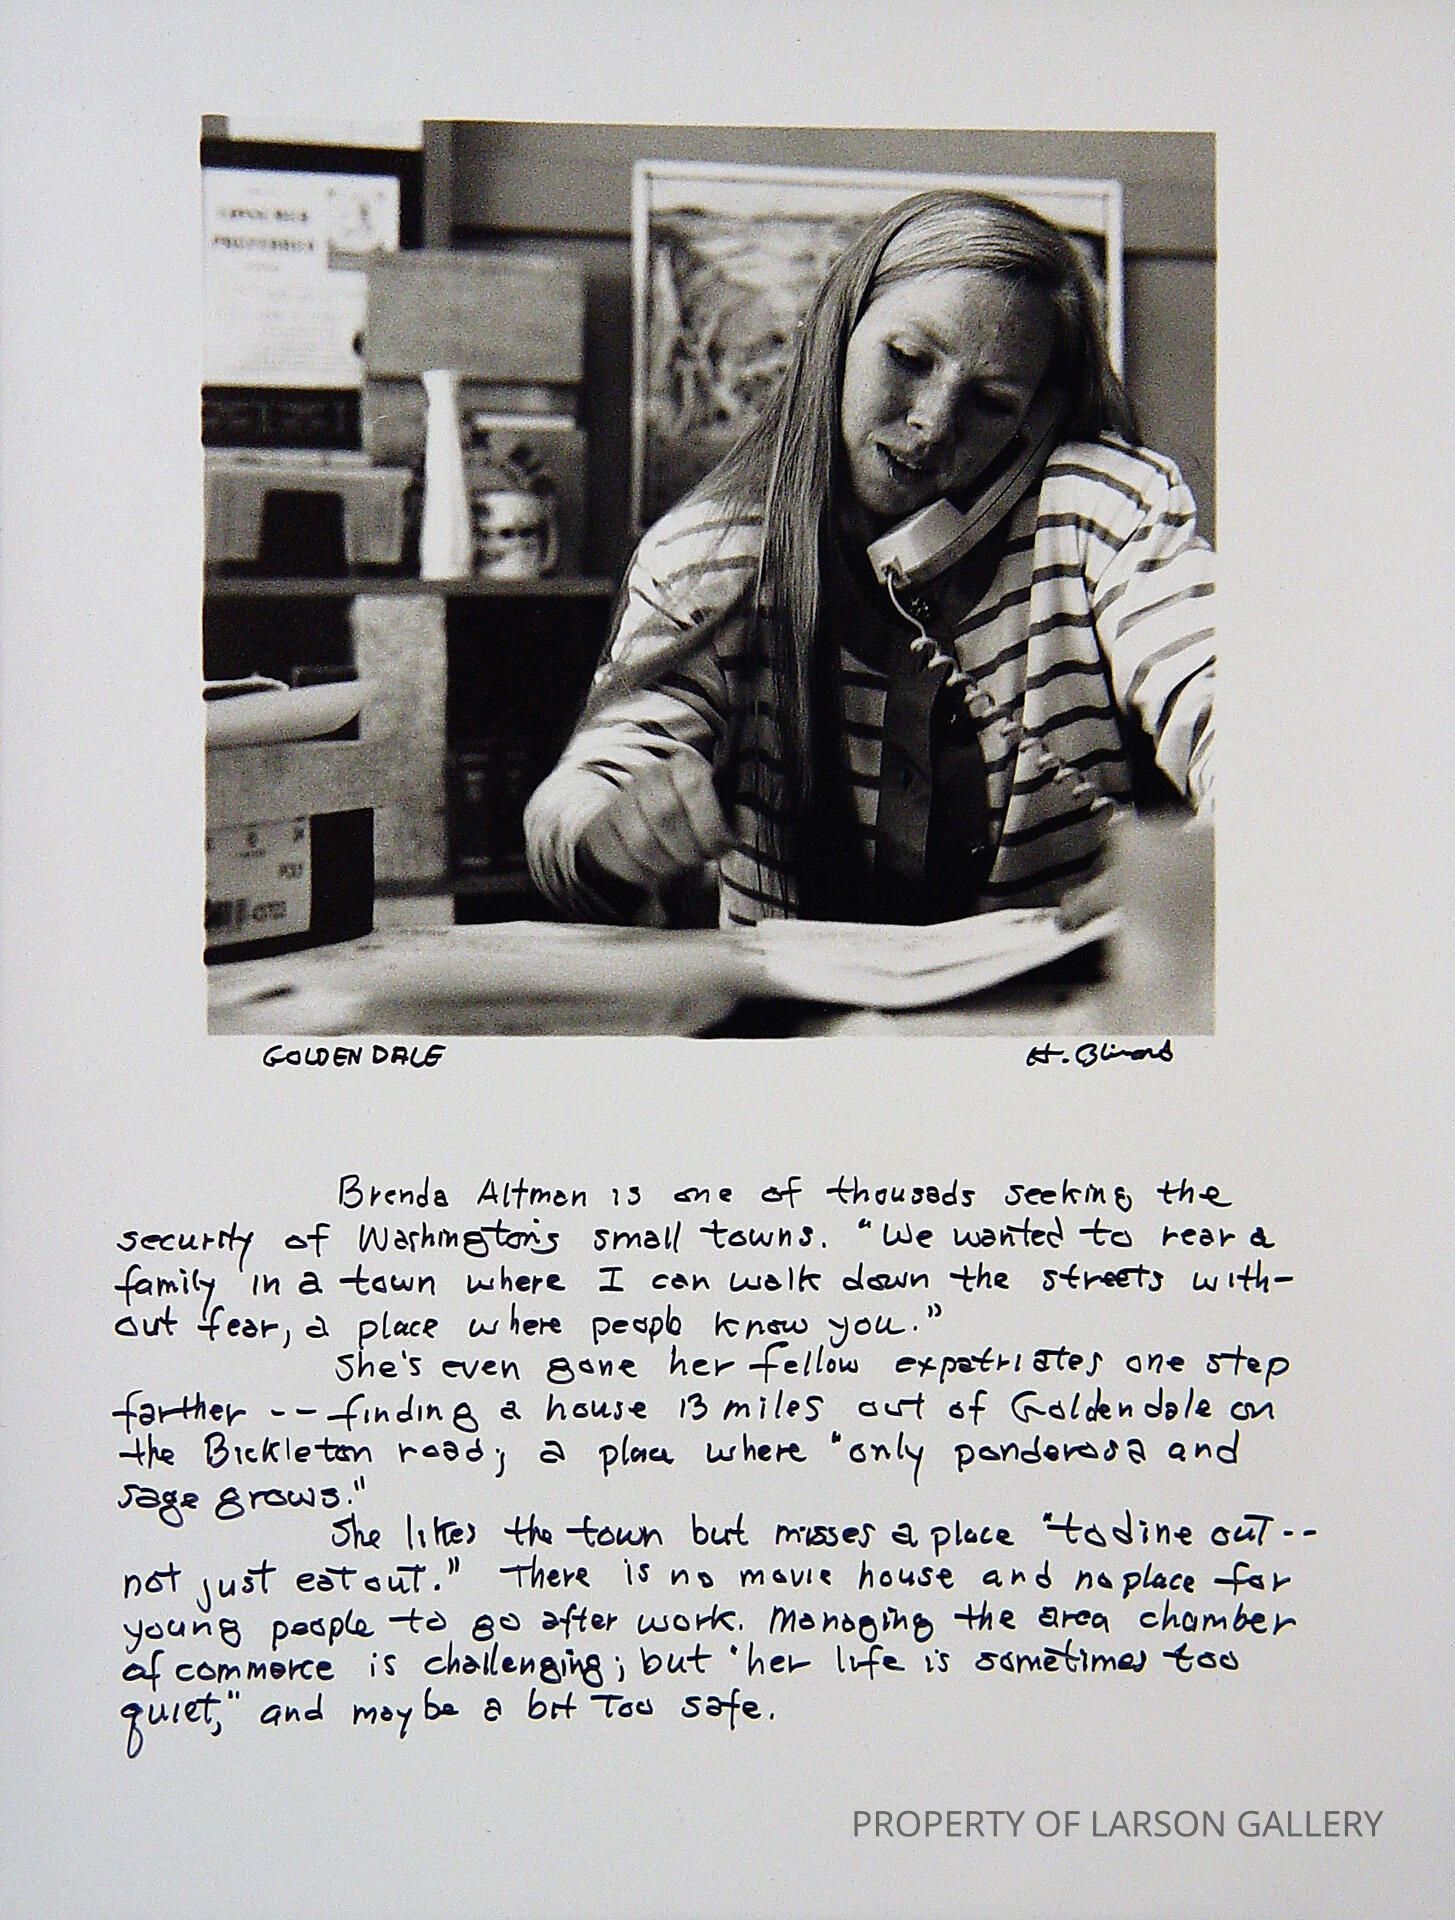 GOLDENDALE
H.
Brenda Altman is one of thousads seeking the
security of Washington's small towns. "We wanted to rear a
family in a town where I can walk down the streets with-
out fear, a place where people know you."
She's even gone her fellow expatriates one step
farther -- finding a house 13 miles out of Goldendale on
the Bickleton road; a place where "only ponderosa and
sage grows."
She likes the town but misses a place "to dine out --
not just eat out." There is no movie house and no place for
young people to go after work. Managing the area chamber
of commerce is challenging; but "her life is sometimes too
quiet," and maybe a bit too safe.
PROPERTY OF LARSON GALLERY